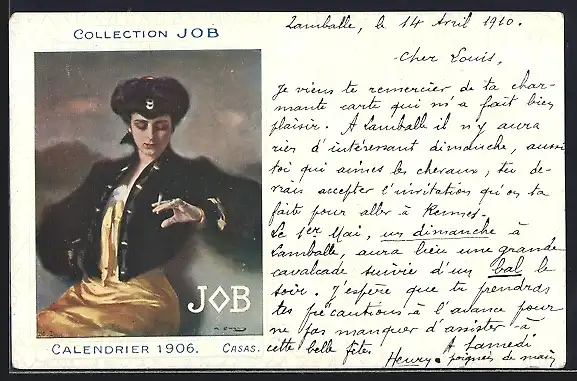 COLLECTION JOB
JOB
CALENDRIER 1906. CASAS.
Lamballe, le 14 Avril 1910.
Cher Louis,
Je viens te remercier de ta char-
mante carte qui m'a fait bien
plaisir. A Lamballe il n'y aura
rien d'intéressant dimanche, aussi
toi qui aimes les chevaux, tu de-
vrais accepter l'invitation qu'on t'a
faite pour aller à Rennes.
Le 1er Mai, un dimanche à
Lamballe, aura lieu une grande
cavalcade suivie d'un bal le
soir. J'espère que tu prendras
tes précautions à l'avance pour
ne pas manquer d'assister à
cette belle fête. A Samedi
Henry. poignée de main